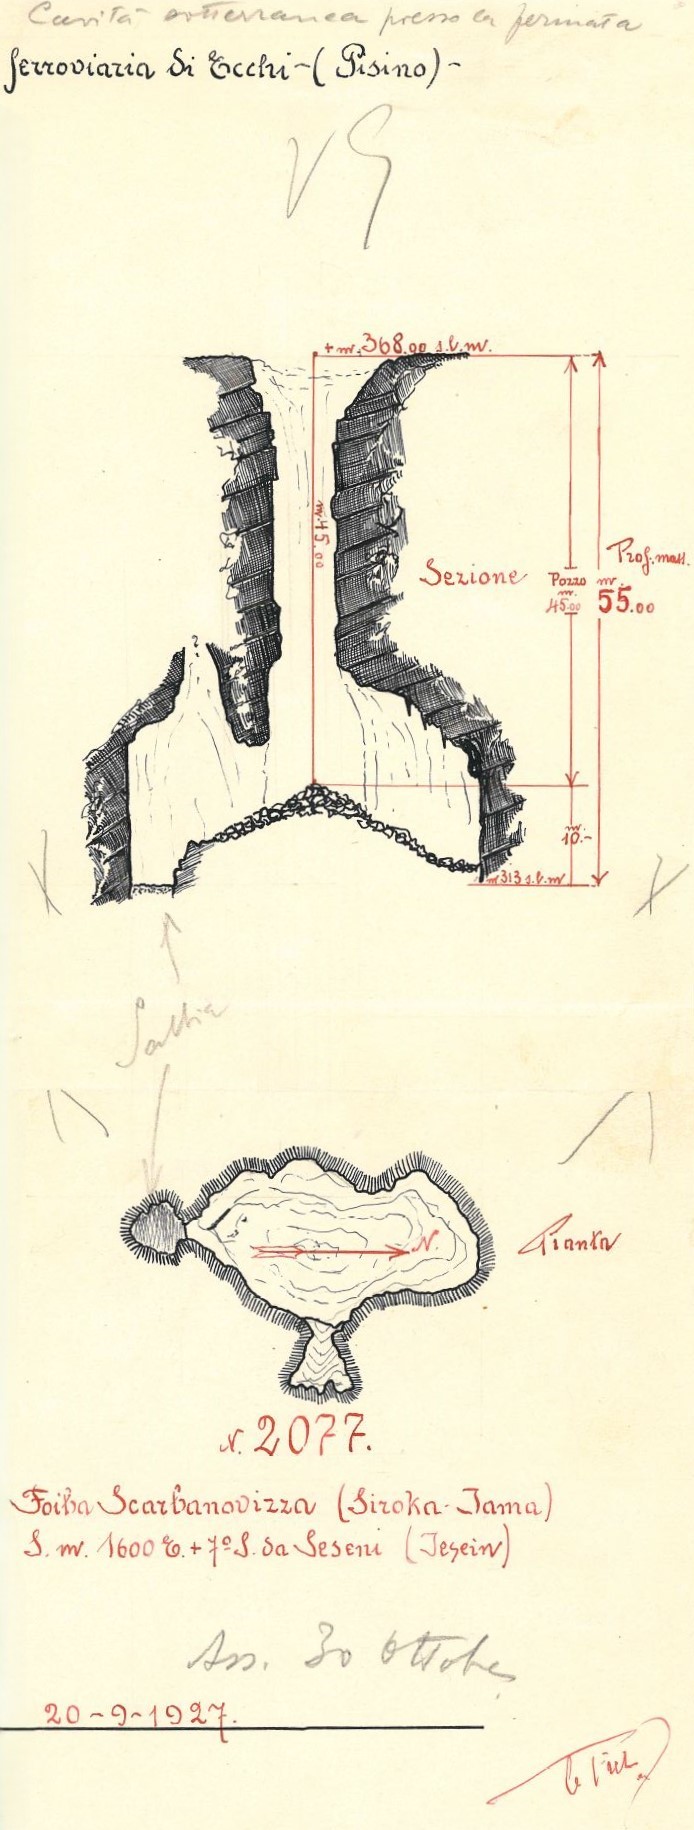 Cavità sotterranea presso la fermata
ferroviaria di Ecchi-(Pisino)-
VG
+ m. 368.00 s.l.m.
m. 45.00
Sezione
Pozzo
m.
45.00
Prof. mass.
m.
55.00
m.
10.-
m 313 s.l.m
Sabbia
N.
Pianta
N. 2077.
Foiba Scarbanovizza (Siroka-Jama)
S. m. 1600 E. + 7° S. da Seseni (Jesein)
30 Ottobre
20-9-1927.